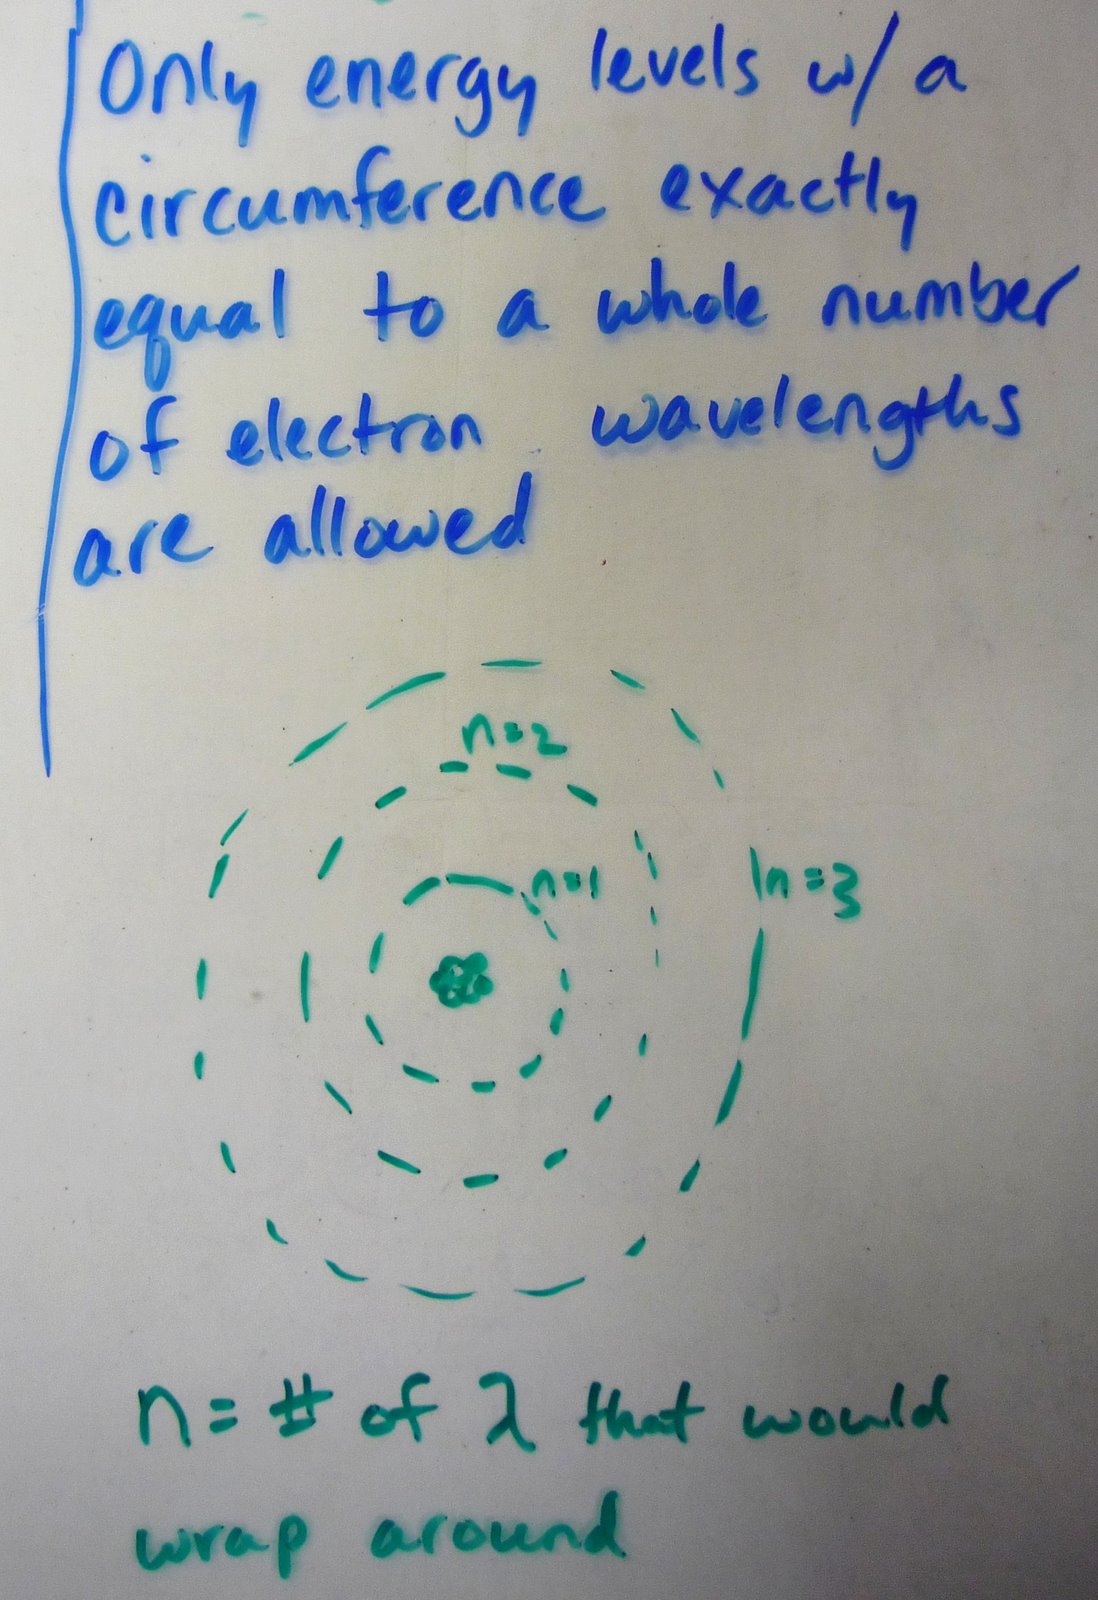 Only energy levels w/ a
circumference exactly
equal to a whole number
of electron wavelengths
are allowed
n=2
n=1
n=3
n = # of λ that would
wrap around